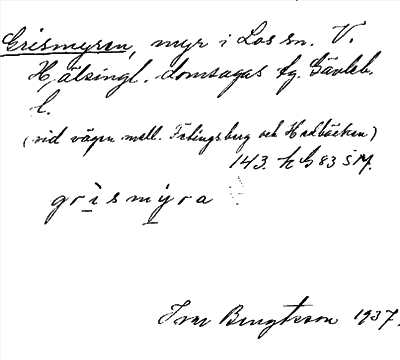 Grismyran, myr i Los sn. V.
Hälsingl. domsagas tg. Gävleb.
l.
(vid vägen mell. Fågelsberg och Hedbäcken)
143. h G 83 SM.
grismyra
Ivar Bengtsson 1937.